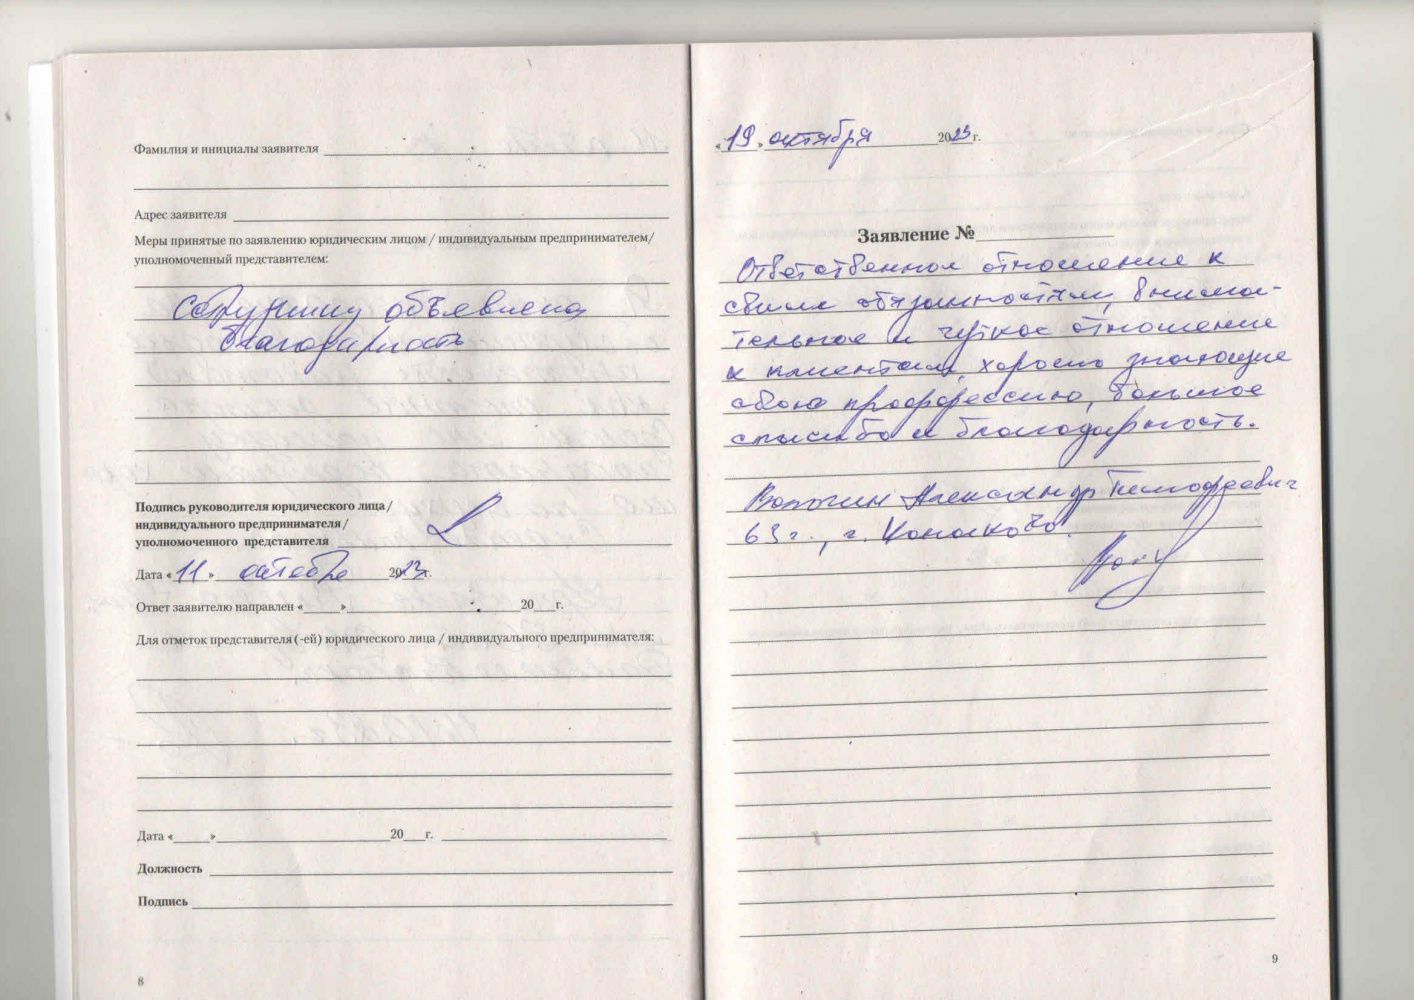 Фамилия и инициалы заявителя
Адрес заявителя
Меры принятые по заявлению юридическим лицом / индивидуальным предпринимателем/
уполномоченный представителем:
Сотруднику объявлена
благодарность
Подпись руководителя юридического лица/
индивидуального предпринимателя/
уполномоченного представителя
Дата «11» октября 2023г.
Ответ заявителю направлен « » 20 г.
Для отметок представителя (-ей) юридического лица / индивидуального предпринимателя:
Дата « » 20 г.
Должность
Подпись
8
«19» октября 2023г.
Заявление №
Ответственное отношение к
своим обязанностям, внима-
тельное и чуткое отношение
к пациентам, хорошо знающие
свою профрессию, большое
спасибо и благодарность.
Александр Тимофеевич
63 г., г. Конаково.
9